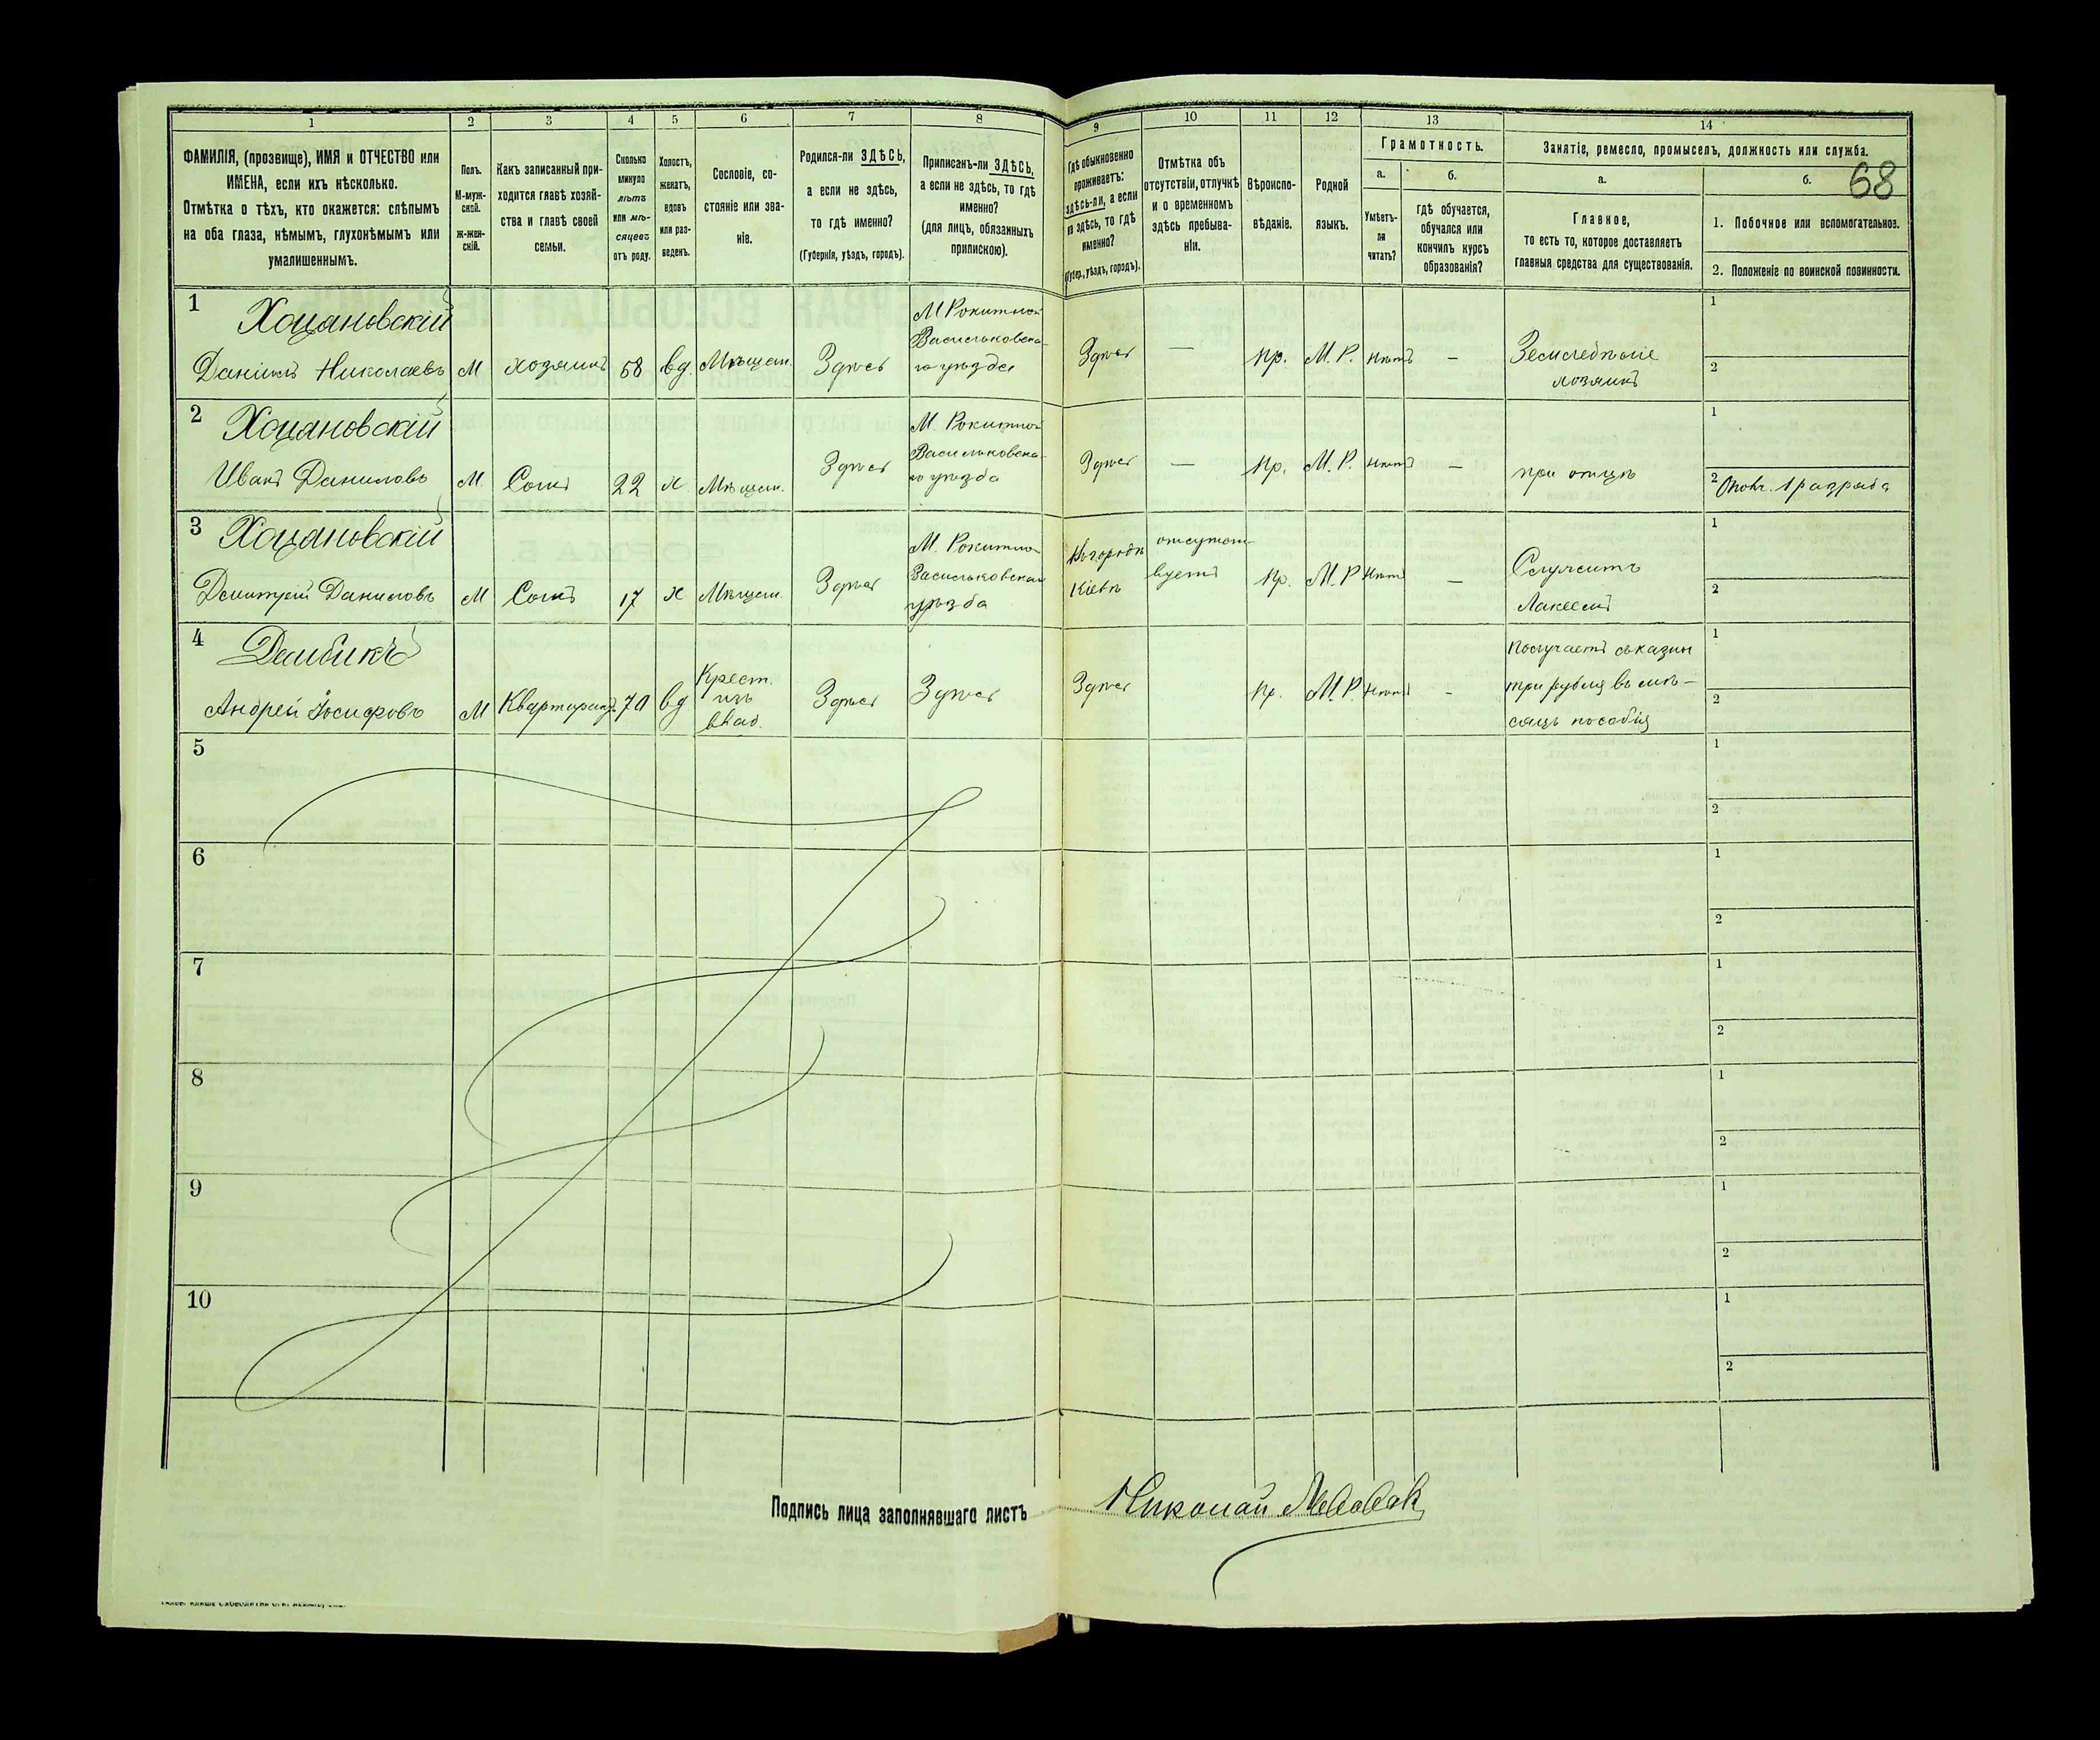 1 2 3 4 5 6 7 8 9 10 11 12 13 14
68
ФАМИЛІЯ, (прозвище), ИМЯ и ОТЧЕСТВО или
ИМЕНА, если ихъ нѣсколько.
Отмѣтка о тѣхъ, кто окажется: слѣпымъ
на оба глаза, нѣмымъ, глухонѣмымъ или
умалишеннымъ.
Полъ.
М-муж-
ской.
ж-жен-
скій.
Какъ записанный при-
ходится главѣ хозяй-
ства и главѣ своей
семьи.
Сколько
минуло
лѣтъ
или мѣ-
сяцевъ
отъ роду.
Холостъ,
женатъ,
вдовъ
или раз-
веденъ.
Сословіе, со-
стояніе или зва-
ніе.
Родился-ли ЗДѢСЬ,
а если не здѣсь,
то гдѣ именно?
(Губернія, уѣздъ, городъ).
Приписанъ-ли ЗДѢСЬ,
а если не здѣсь, то гдѣ
именно?
(для лицъ, обязанныхъ
припискою).
Гдѣ обыкновенно
проживаетъ:
здѣсь-ли, а если
не здѣсь, то гдѣ
именно?
(Губер., уѣздъ, городъ).
Отмѣтка объ
отсутствіи, отлучкѣ
и о временномъ
здѣсь пребыва-
ніи.
Вѣроиспо-
вѣданіе.
Родной
языкъ.
Грамотность.
а.
Умѣетъ-
ли
читать?
б.
гдѣ обучается,
обучался или
кончилъ курсъ
образованія?
Занятіе, ремесло, промыселъ, должность или служба.
а.
Главное,
то есть то, которое доставляетъ
главныя средства для существованія.
б.
1. Побочное или вспомогательное.
2. Положеніе по воинской повинности.
1 Хоцановскій
Даніилъ Николаевъ
М
хозяинъ
58
вд.
Мѣщан.
Здѣсь
М Рокитно
Васильковска-
го уѣзда
Здѣсь
—
пр.
М. Р.
нѣтъ
—
Земледѣліе
хозяинъ
1
2
2 Хоцановскій
Иванъ Даниловъ
М.
Сынъ
22
х.
Мѣщан.
Здѣсь
М. Рокитно
Васильковска-
го уѣзда
Здѣсь
—
пр.
М. Р.
нѣтъ
—
при отцѣ
1
2 Ополч. 1 разряда
3 Хоцановскій
Дмитрій Даниловъ
М
Сынъ
17
х
Мѣщан.
Здѣсь
М. Рокитно
Васильковскаго
уѣзда
Въ городѣ
Кіевѣ
отсутст-
вуетъ
пр.
М. Р
нѣтъ
—
Служитъ
Лакеемъ
1
2
4 Дембикъ
Андрей Іосифовъ
М
Квартирантъ
70
вд
Крест.
изъ
влад.
Здѣсь
Здѣсь
Здѣсь
пр.
М. Р.
нѣтъ
-
Получаетъ съ казны
три рубля въ мѣ-
сяцъ пособія
1
2
5
1
2
6
1
2
7
1
2
8
1
2
9
1
2
10
1
2
Подпись лица заполнявшаго листъ
Николай